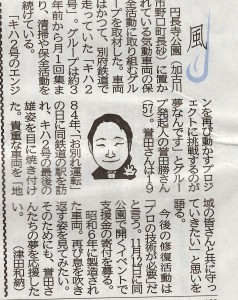 風
円長寺公園(加古川
市野口町長砂)に置か
れている気動車の保
全活動に取り組むグル
ープを取材した。車両
はかつて、別府鉄道で
走っていた「キハ2
号」。グループは約3
年前から月1回集ま
り、清掃や保全活動を
続けている。
「キハ2号のエンジ
ンを再び動かすプロジ
ェクトに挑戦するのが
夢なんです」とグルー
プ発起人の誉田勝さん
(57)。誉田さんは19
84年、「お別れ運転」
の日に同鉄道の駅を訪
れ、キハ2号の最後の
雄姿を目に焼き付け
た。貴重な車両を「地
域の皆さんと共に守っ
ていきたい」と思いを
語る。
今後の修復活動は
「プロの技術が必要だ」
と言う。11月12日に同
公園で開くイベントで
支援金の寄付を募る。
昭和6年に製造され
た車両。再び息を吹き
返す姿を見てみたい。
そのためにも、誉田さ
んたちの夢を応援した
い。(津田和納)